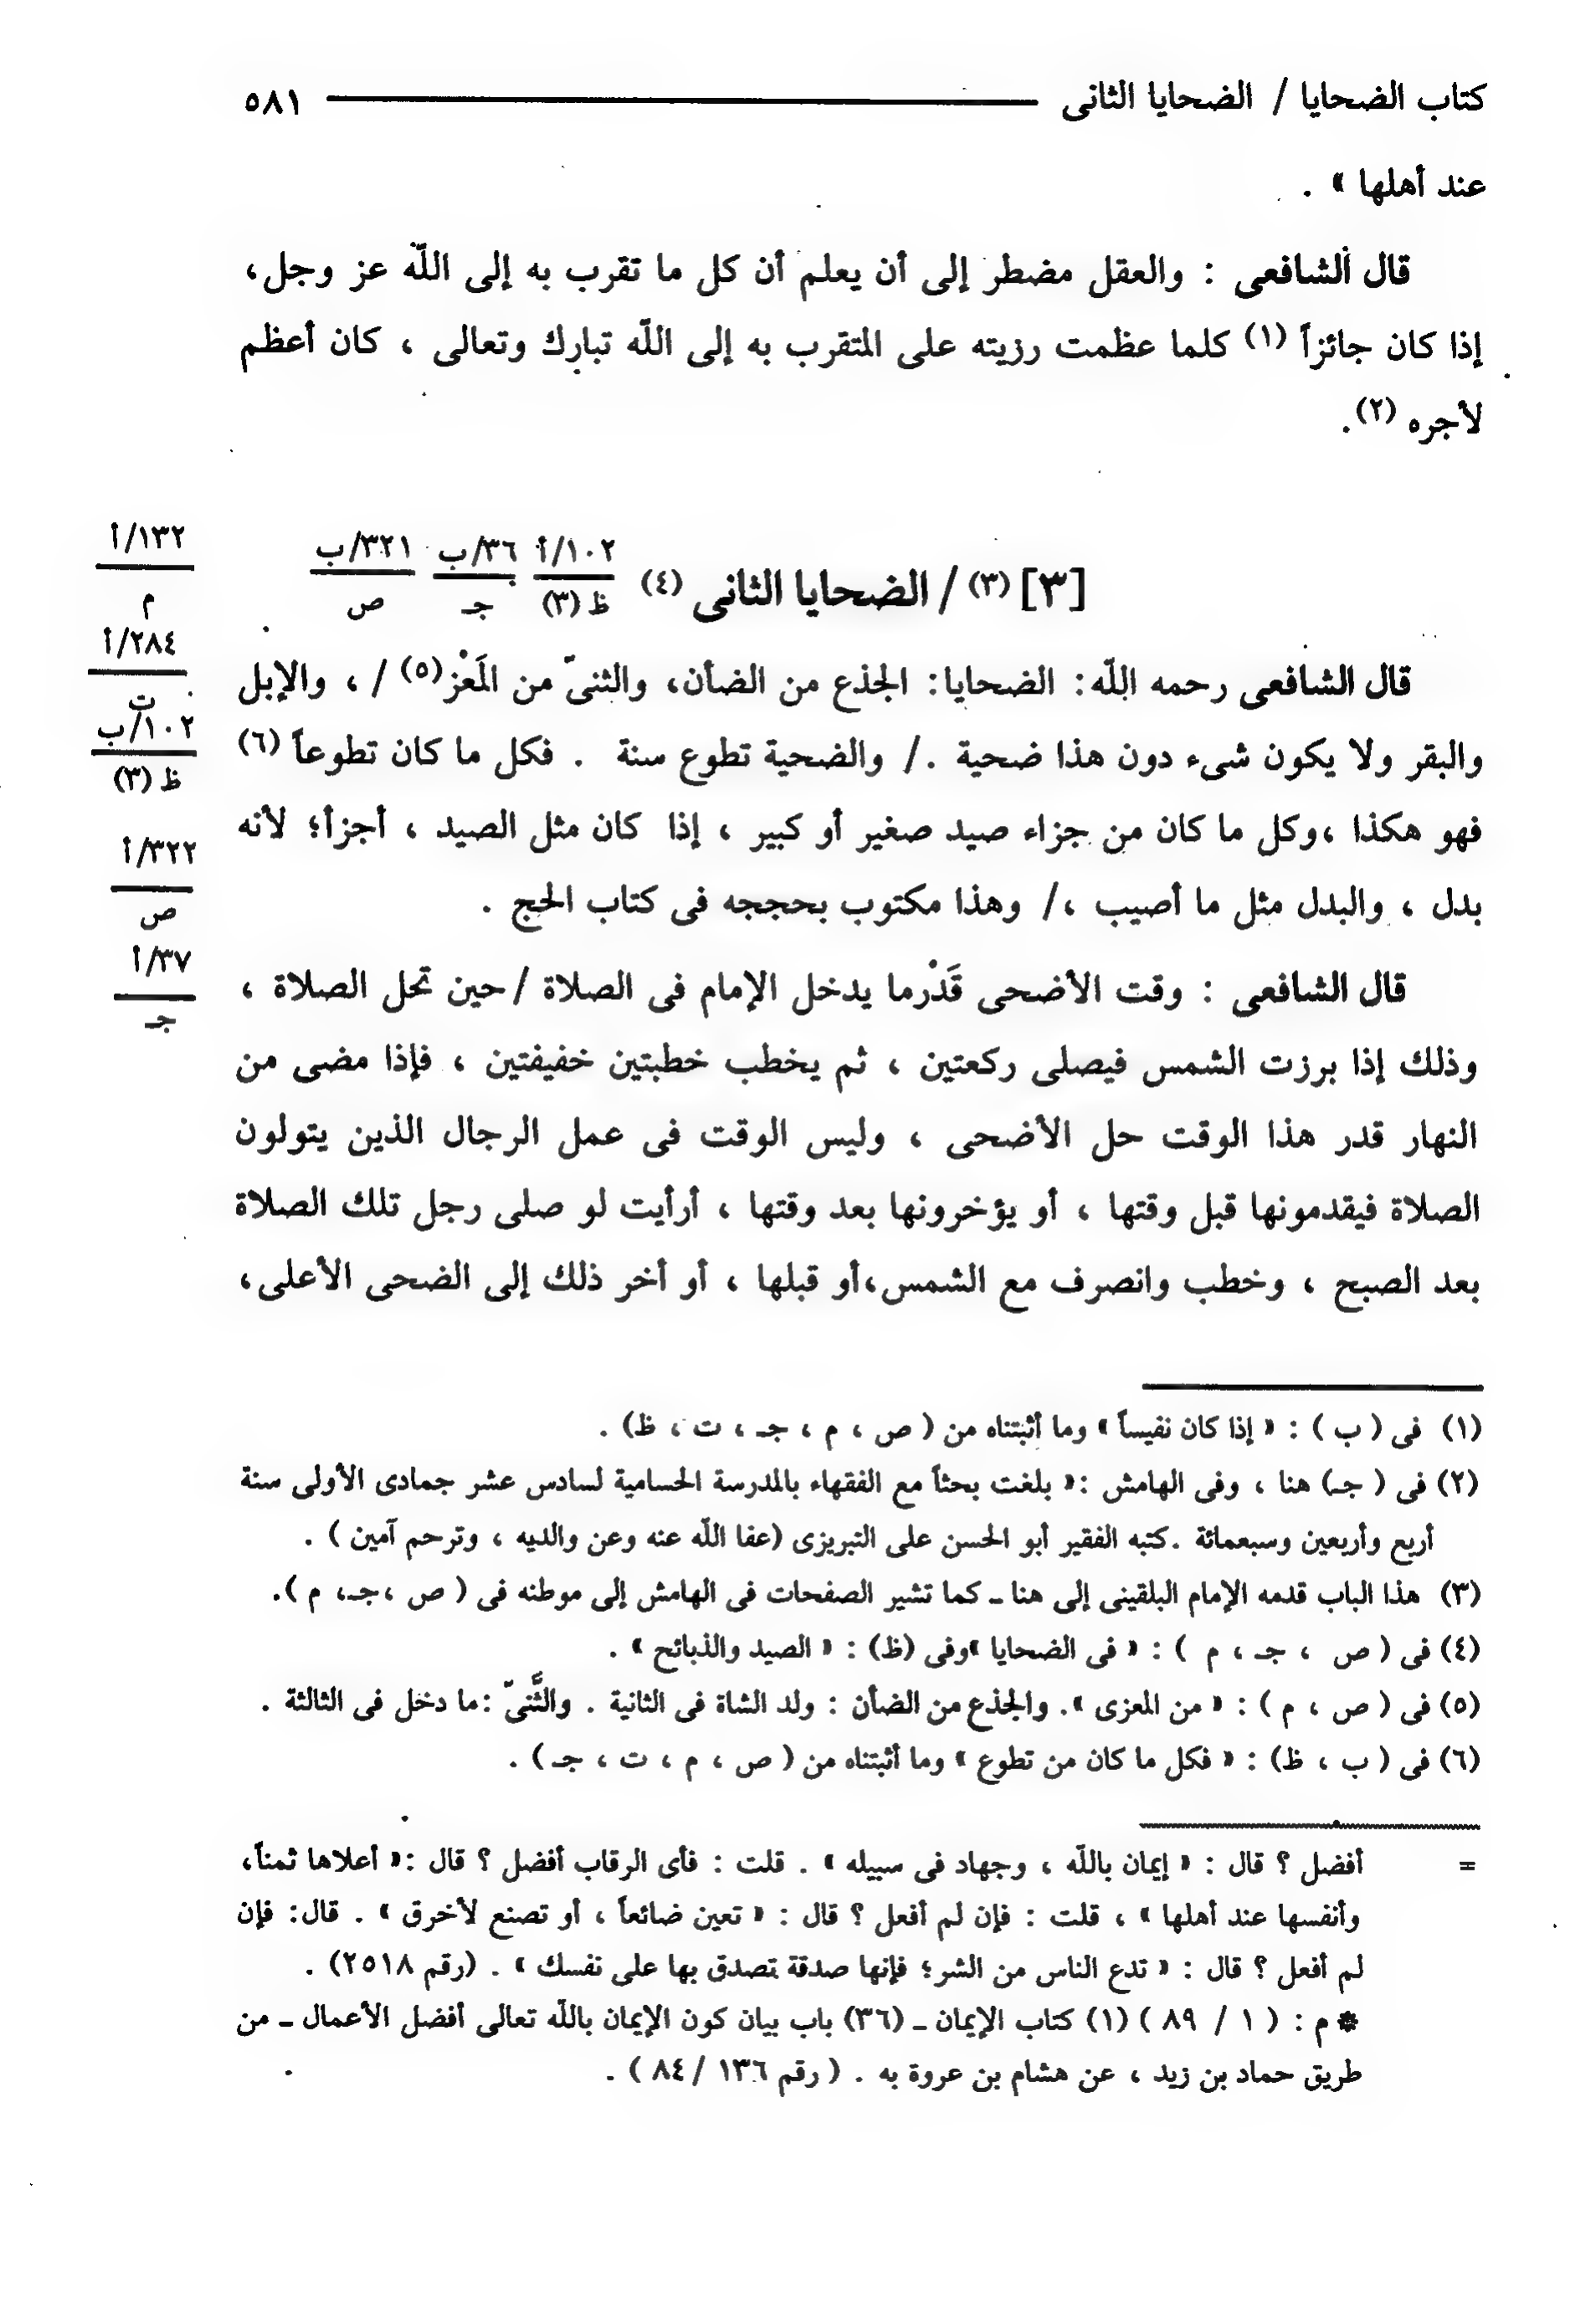 كتاب الضحايا / الضحايا الثانى ٥٨١
عند أهلها » .
قال الشافعى : والعقل مضطر إلى أن يعلم أن كل ما تقرب به إلى اللّه عز وجل،
إذا كان جائزاً (١) كلما عظمت رزيته على المتقرب به إلى اللّه تبارك وتعالى ، كان أعظم
لأجره (٢).
[٣] (٣) / الضحايا الثانى (٤)
١٠٢/أ
ظ (٣)
٣٦/ب
جـ
٣٢١/ب
ص
١٣٢/أ
م
قال الشافعى رحمه اللّه: الضحايا: الجذع من الضأن، والثنىّ من المَعْز(٥) / ، والإبل
والبقر ولا يكون شىء دون هذا ضحية ./ والضحية تطوع سنة . فكل ما كان تطوعاً (٦)
فهو هكذا ،وكل ما كان من جزاء صيد صغير أو كبير ، إذا كان مثل الصيد ، أجزأ؛ لأنه
بدل ، والبدل مثل ما أصيب ،/ وهذا مكتوب بحججه فى كتاب الحج .
٢٨٤/أ
ت
١٠٢/ب
ظ (٣)
٣٢٢/أ
ص
قال الشافعى : وقت الأضحى قَدْرما يدخل الإمام فى الصلاة /حين تحل الصلاة ،
٣٧/أ
جـ
وذلك إذا برزت الشمس فيصلى ركعتين ، ثم يخطب خطبتين خفيفتين ، فإذا مضى من
النهار قدر هذا الوقت حل الأضحى ، وليس الوقت فى عمل الرجال الذين يتولون
الصلاة فيقدمونها قبل وقتها ، أو يؤخرونها بعد وقتها ، أرأيت لو صلى رجل تلك الصلاة
بعد الصبح ، وخطب وانصرف مع الشمس،أو قبلها ، أو أخر ذلك إلى الضحى الأعلى،
(١) فى ( ب ) : « إذا كان نفيساً » وما أثبتناه من ( ص ، م ، جـ ، ت ، ظ) .
(٢) فى ( جـ) هنا ، وفى الهامش :« بلغت بحثاً مع الفقهاء بالمدرسة الحسامية لسادس عشر جمادى الأولى سنة
أربع وأربعين وسبعمائة .كتبه الفقير أبو الحسن على التبريزى (عفا اللّه عنه وعن والديه ، وترحم آمين ) .
(٣) هذا الباب قدمه الإمام البلقينى إلى هنا ـ كما تشير الصفحات فى الهامش إلى موطنه فى ( ص ،جـ، م ).
(٤) فى ( ص ، جـ ، م ) : « فى الضحايا »وفى (ظ) : « الصيد والذبائح » .
(٥) فى ( ص ، م ) : « من المعزى ». والجذع من الضأن : ولد الشاة فى الثانية . والثَّنىّ :ما دخل فى الثالثة .
(٦) فى ( ب ، ظ) : « فكل ما كان من تطوع » وما أثبتناه من ( ص ، م ، ت ، جـ ) .
= أفضل ؟ قال : « إيمان باللّه ، وجهاد فى سبيله » . قلت : فأى الرقاب أفضل ؟ قال :« أعلاها ثمناً،
وأنفسها عند أهلها » ، قلت : فإن لم أفعل ؟ قال : « تعين ضائعاً ، أو تصنع لأخرق » . قال: فإن
لم أفعل ؟ قال : « تدع الناس من الشر؛ فإنها صدقة تصدق بها على نفسك » . (رقم ٢٥١٨) .
* م : ( ١ / ٨٩ ) (١) كتاب الإيمان ـ (٣٦) باب بيان كون الإيمان باللّه تعالى أفضل الأعمال ـ من
طريق حماد بن زيد ، عن هشام بن عروة به . ( رقم ١٣٦ / ٨٤ ) .